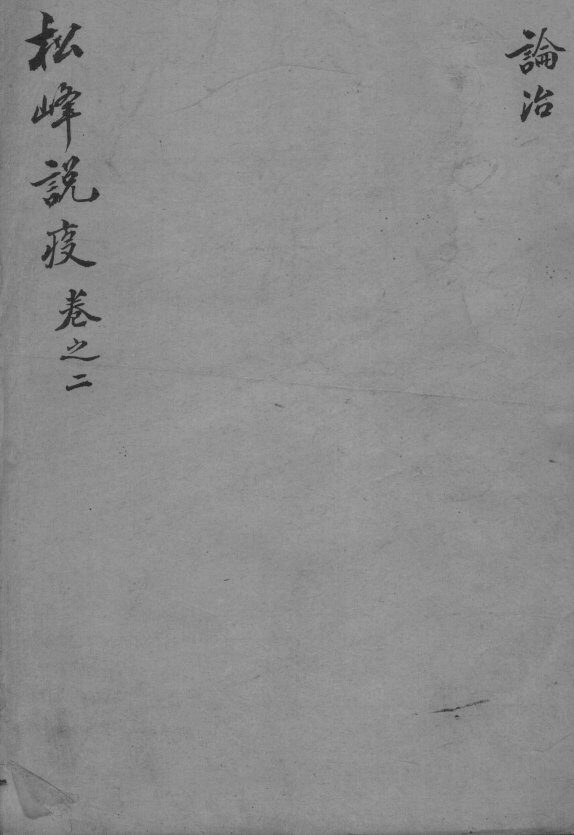 論治
松峰說疫 卷之二